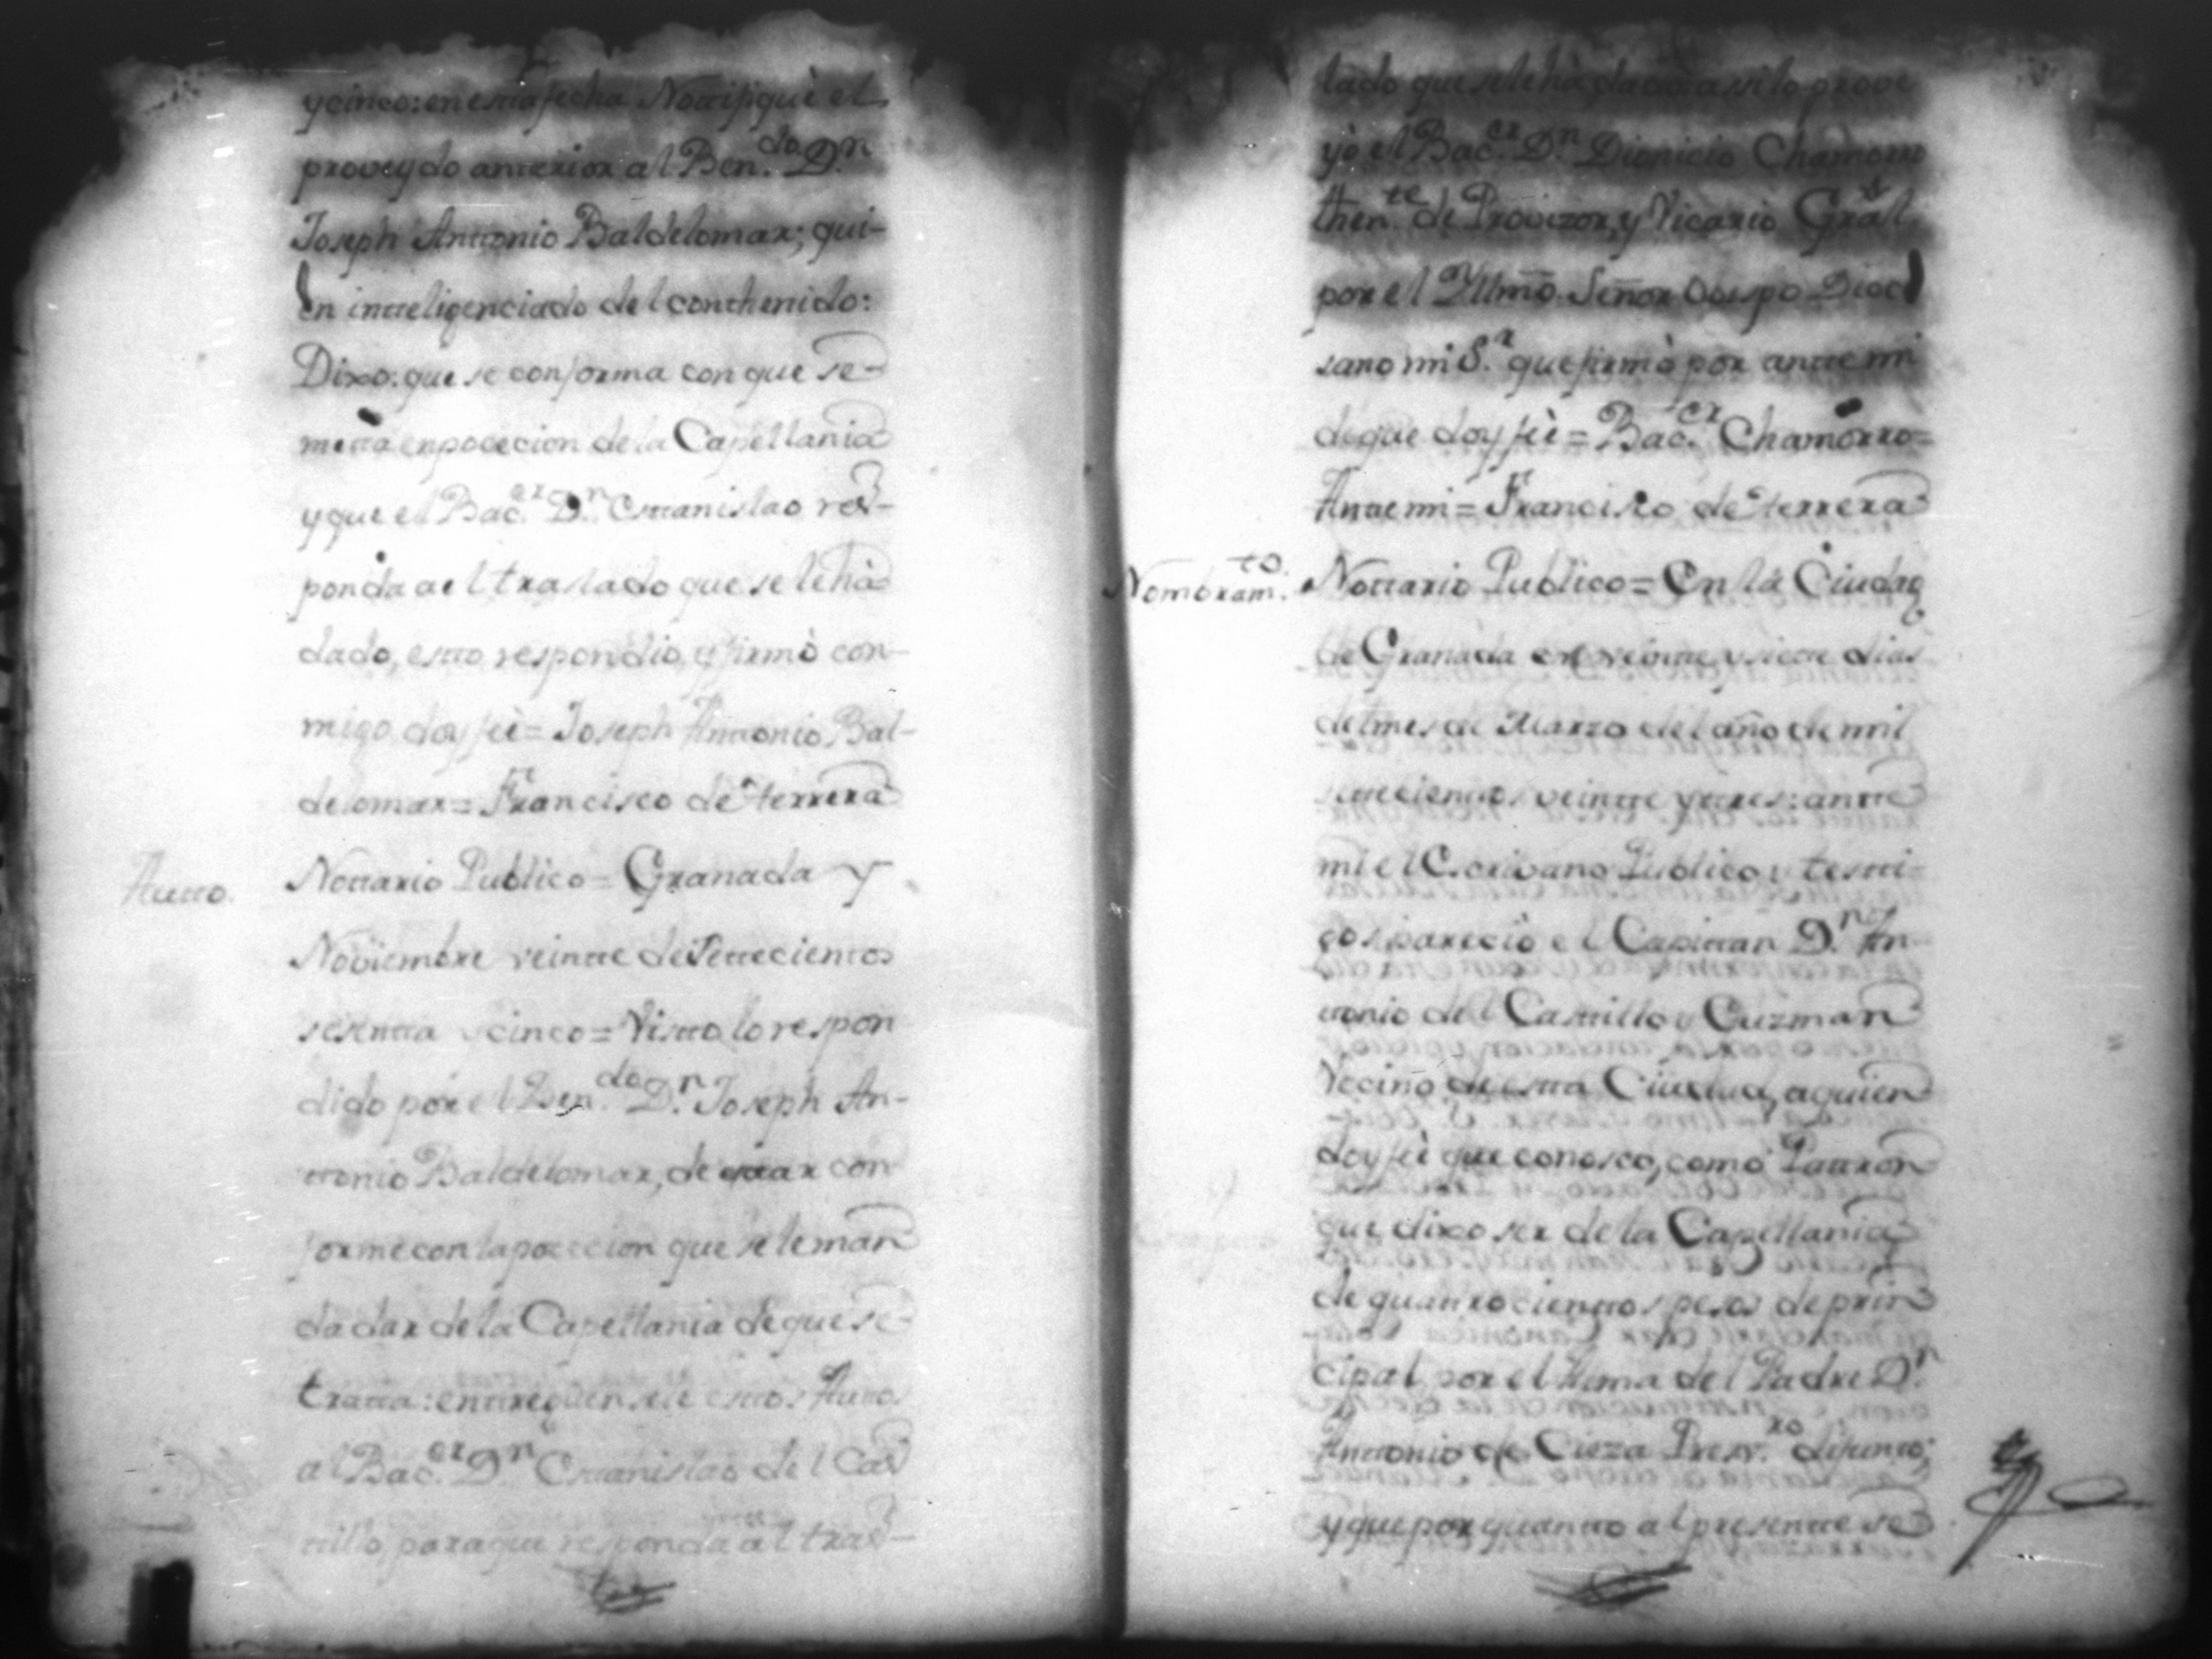 ycinco: en esta fecha Nottifiquè el
proveydo anterior al Ben.do D.n
Joseph Anttonio Baldelomar; qui-
en intteligenciado del conthenido:
Dixo: que se conforma con que se-
metta enpocecion de la Capellania
y que el Bac.er D.n Esttanislao res-
ponda a el traslado que se le hà
dado, estto respondio, y firmò con-
migo, doy feè = Joseph Anttonio Bal-
delomar = Francisco de Herrera
Notario Publico = Granada y
Autto.
Noviembre veintte de settecienttos
sesentta y cinco = Vistto lo respon
dido por el Ben.do D.n Joseph An-
ttonio Baldelomar, de esttar con
forme con la pocecion que se le man
da dar de la Capellania de que se
tratta: enttreguensele esttos Auttos
al Bac.er D.n Esttanislao del Cas
ttillo, para que responda al tras-
lado que se le hà dado assi lo prove
yò el Bac.er D.n Dionicio Chamorro
then.te de Provizor, y Vicario Gral
por el Yllmo. Señor Obispo Dioce
sano mi S.r que firmò por antte mi
de que doy feè = Bac.er Chamorro =
Antte mi = Francisco de Herrera
Nombram.to Nottario Publico = En la Ciudad
de Granada en veintte y siette dias
del mes de Marzo del año de mil
settecienttos veintte y ttres: antte
mi el Escrivano Publico y testti-
gos parecio el Capittan D.n An-
ttonio del Casttillo y Guzman
Vecino de estta Ciudad, a quien
doy feè que conosco, como Pattron
que dixo ser de la Capellania
de quattrocienttos pesos de prin
cipal por el Alma del Padre D.n
Anttonio de Cieza Presv.ro difuntto;
y que por quantto al presentte se